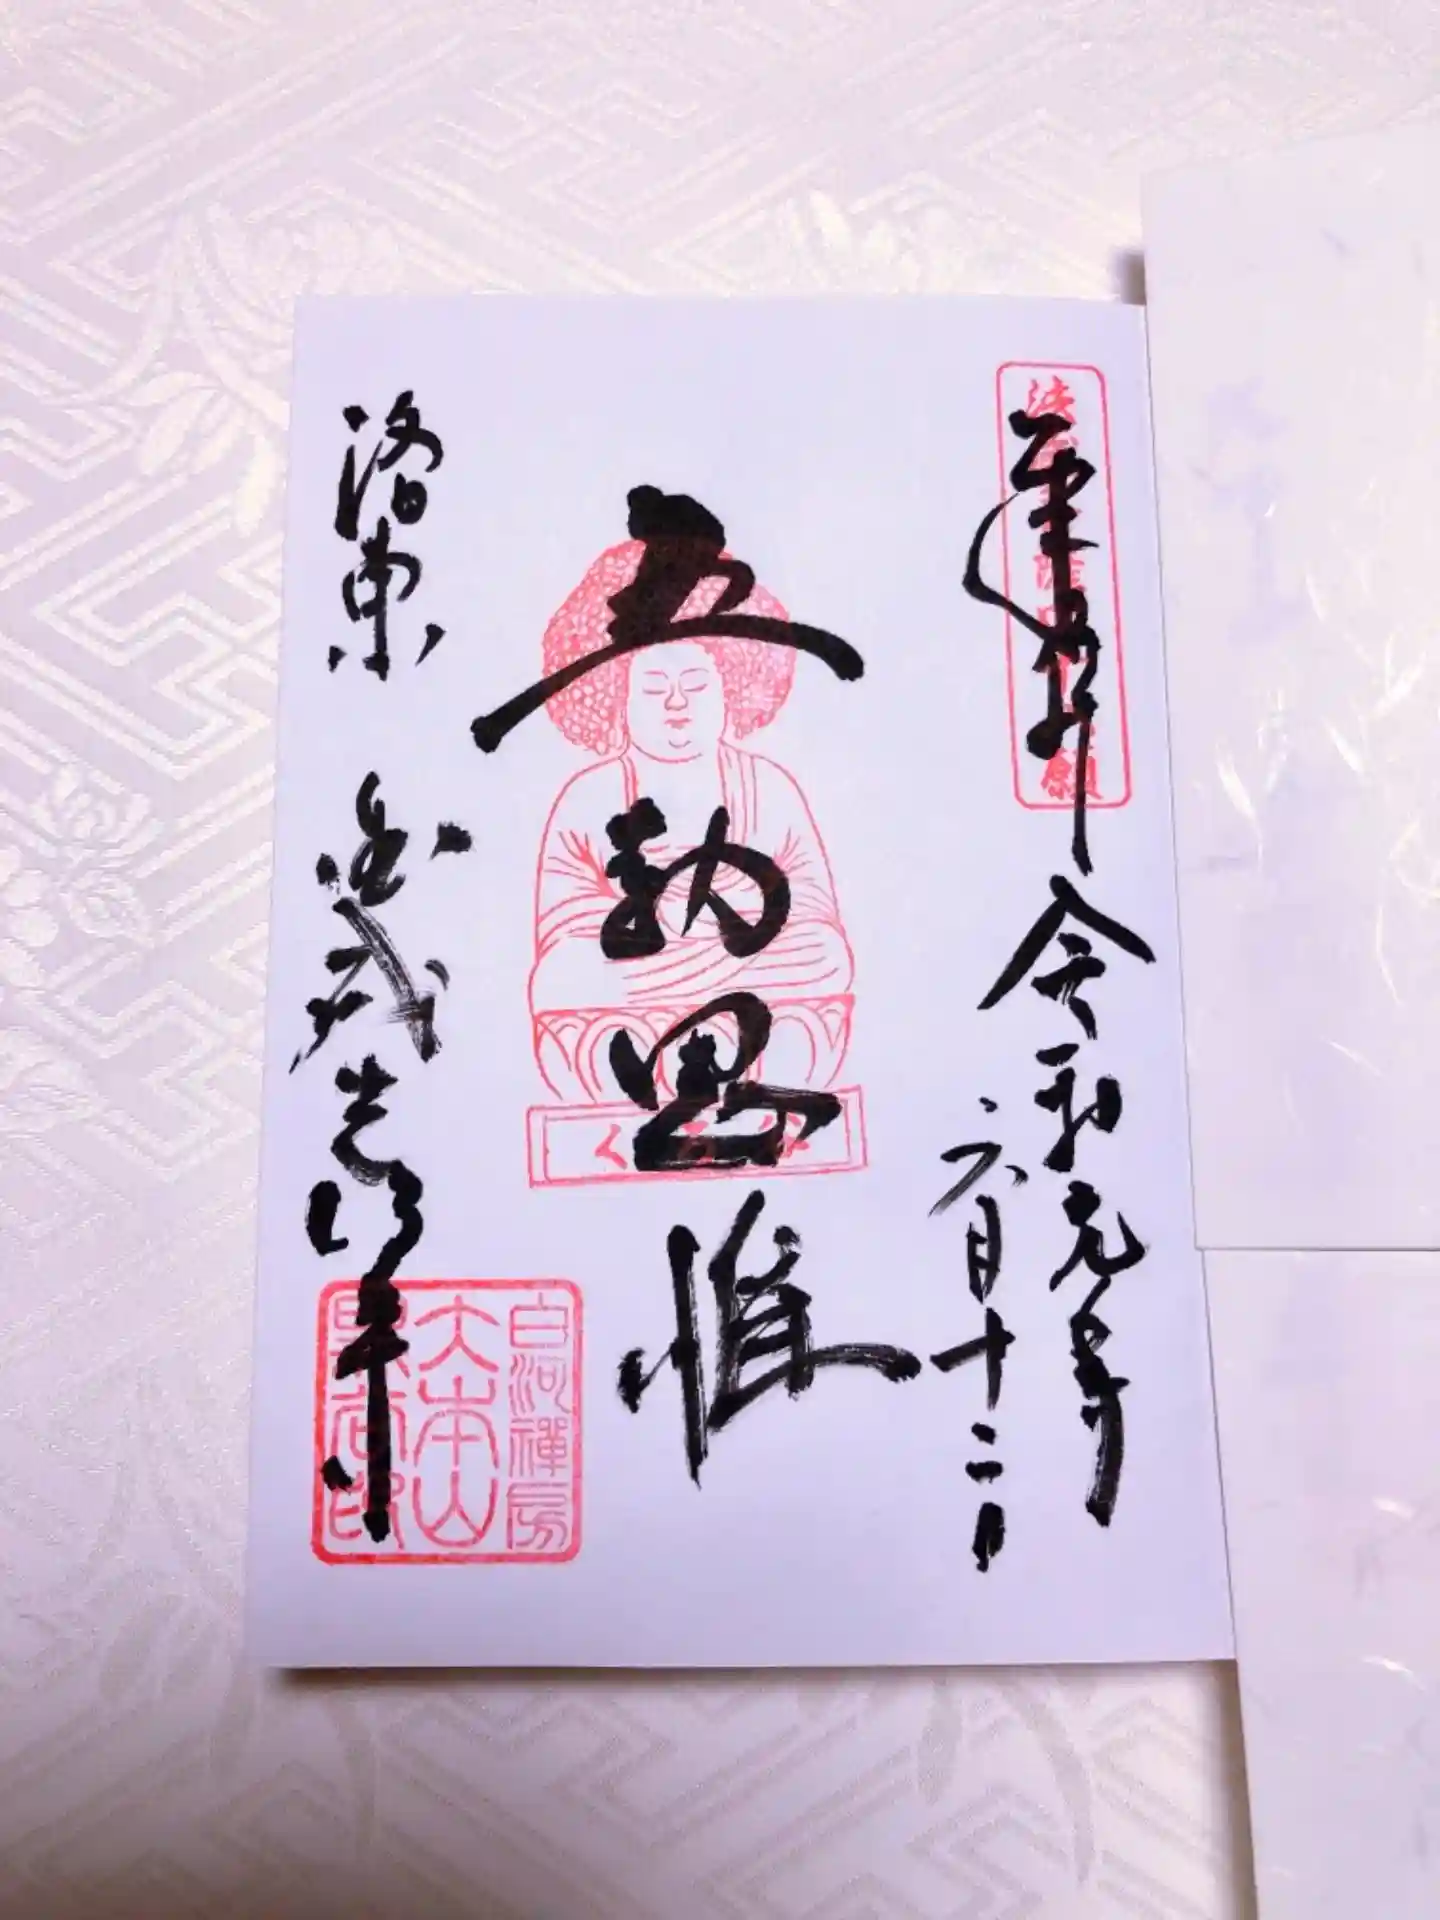 奉拝
令和元年
六月十二日
五劫思惟
洛東
金戒光明寺
白河禪房
大本山
黒谷印